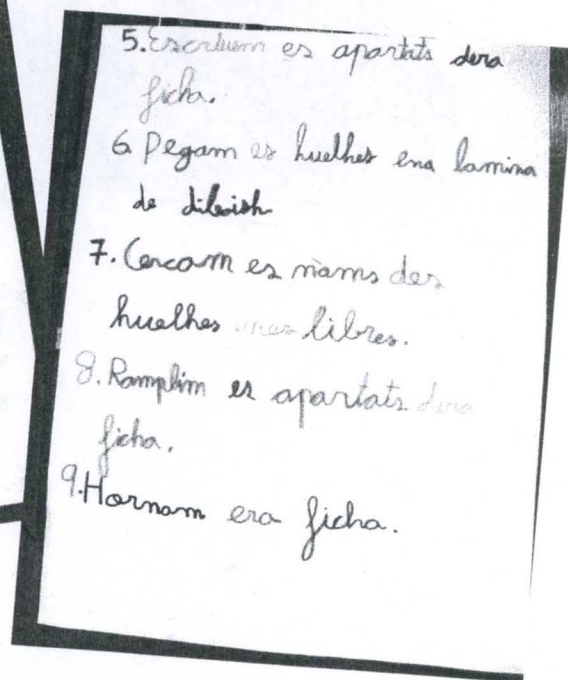 5. Escriuem es apartats dera
ficha.
6 Pegam es huelhes ena lamina
de diboish
7. Cercam es nams des
huelhes enes libres.
8. Ramplim es apartats dera
ficha.
9. Hornam era ficha.